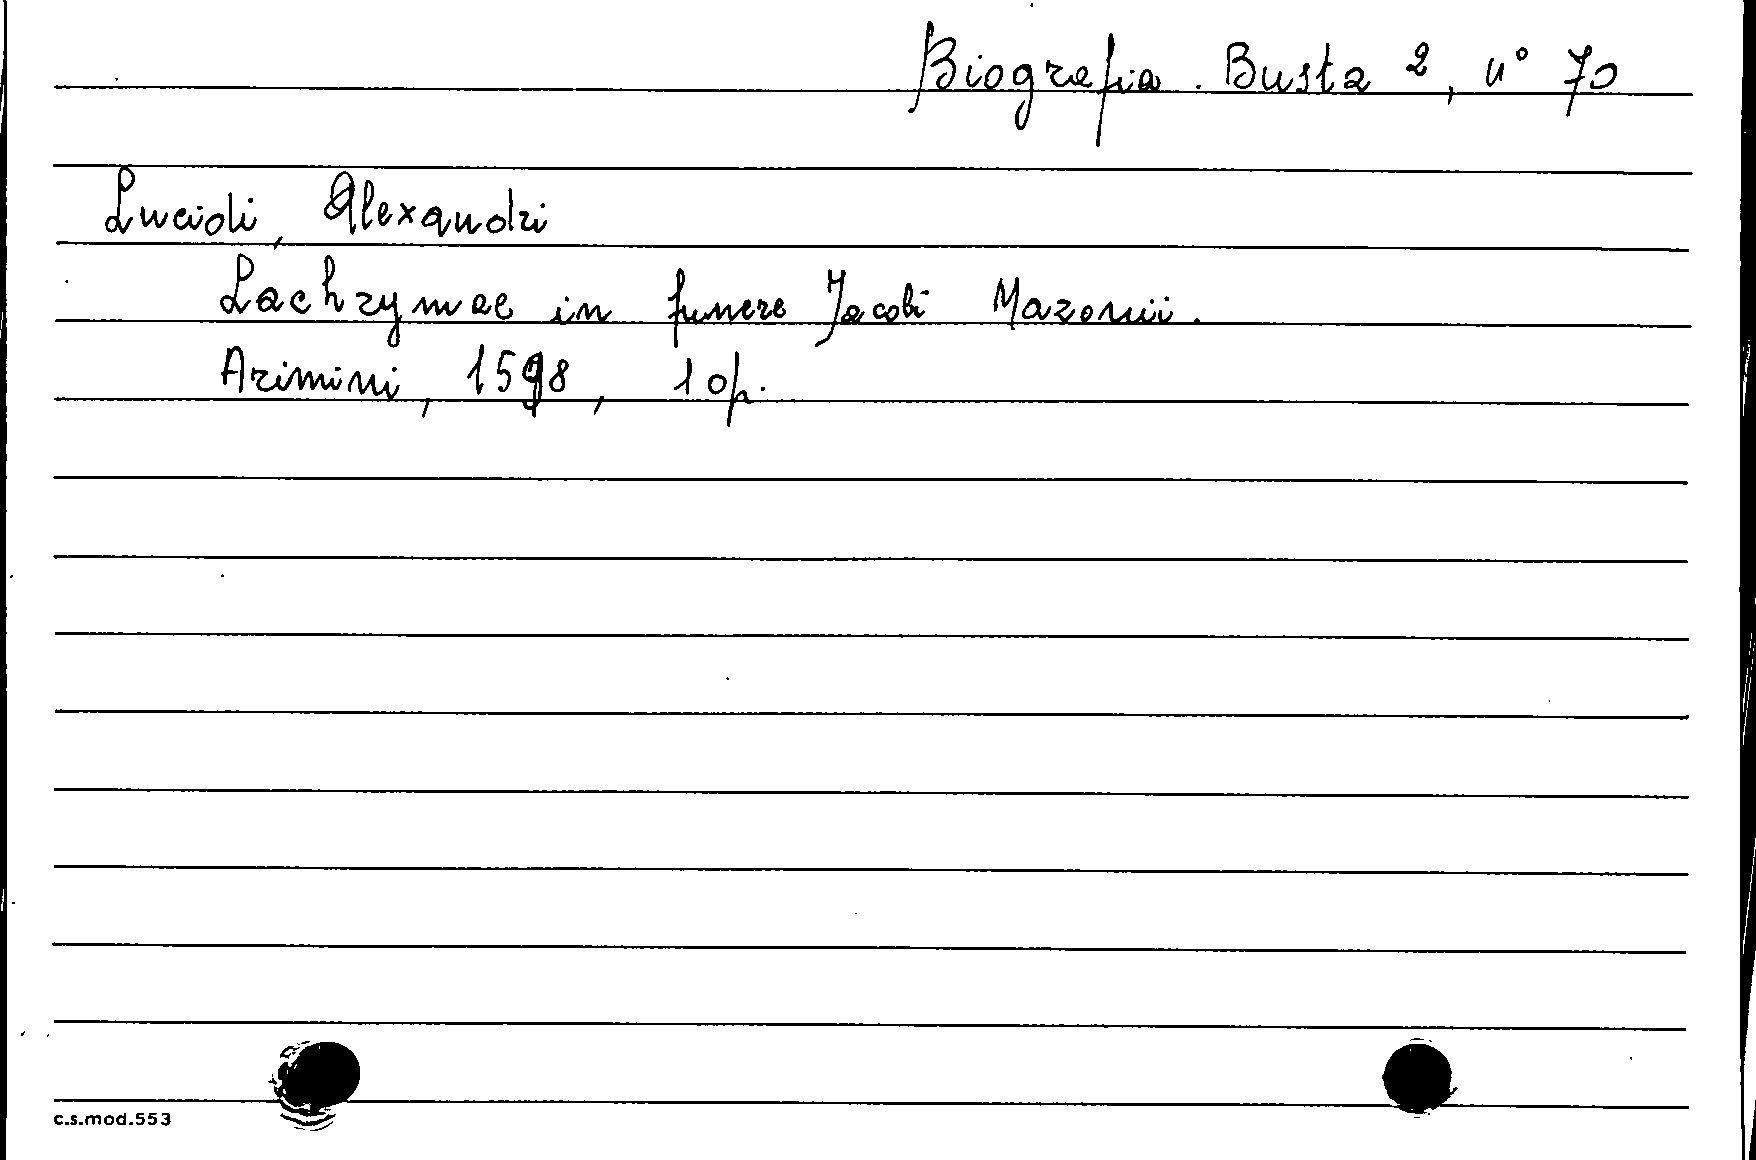 Biografia. Busta 2, n° 70
Lucioli, Alexandri
Lachrymae in funere Jacobi Mazonii.
Arimini, 1598, 10 p.
c.s.mod.553